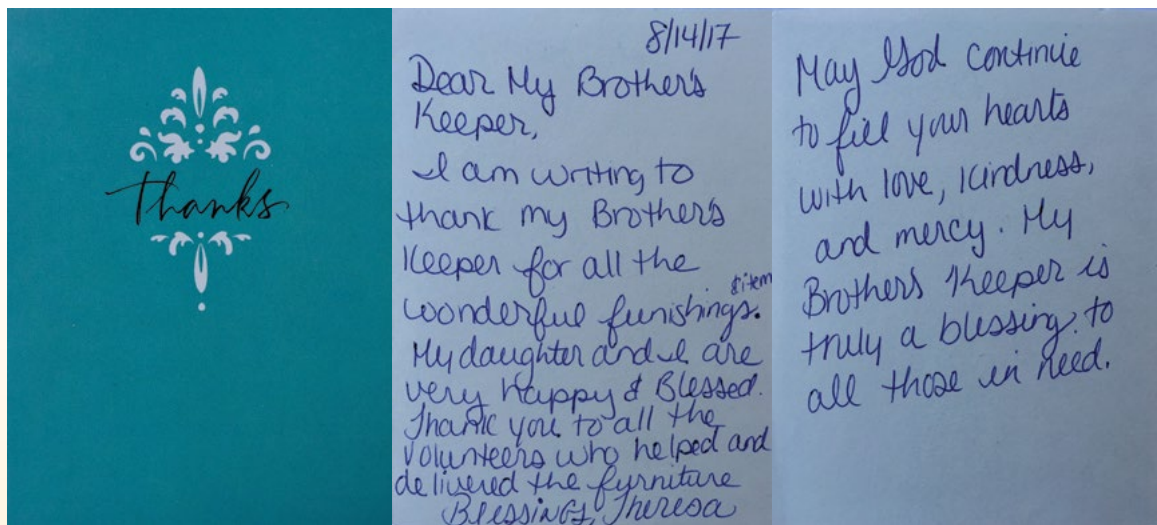 Thanks
8/14/17
Dear My Brother's
Keeper,
I am writing to
thank my Brother's
Keeper for all the
& item
wonderful funishings.
My daughter and I are
very happy & Blessed.
Thank you to all the
volunteers who helped and
delivered the furniture
Blessings, Theresa
May God continue
to fill your hearts
with love, kindness,
and mercy. My
Brothers Keeper is
truly a blessing to
all those in need.